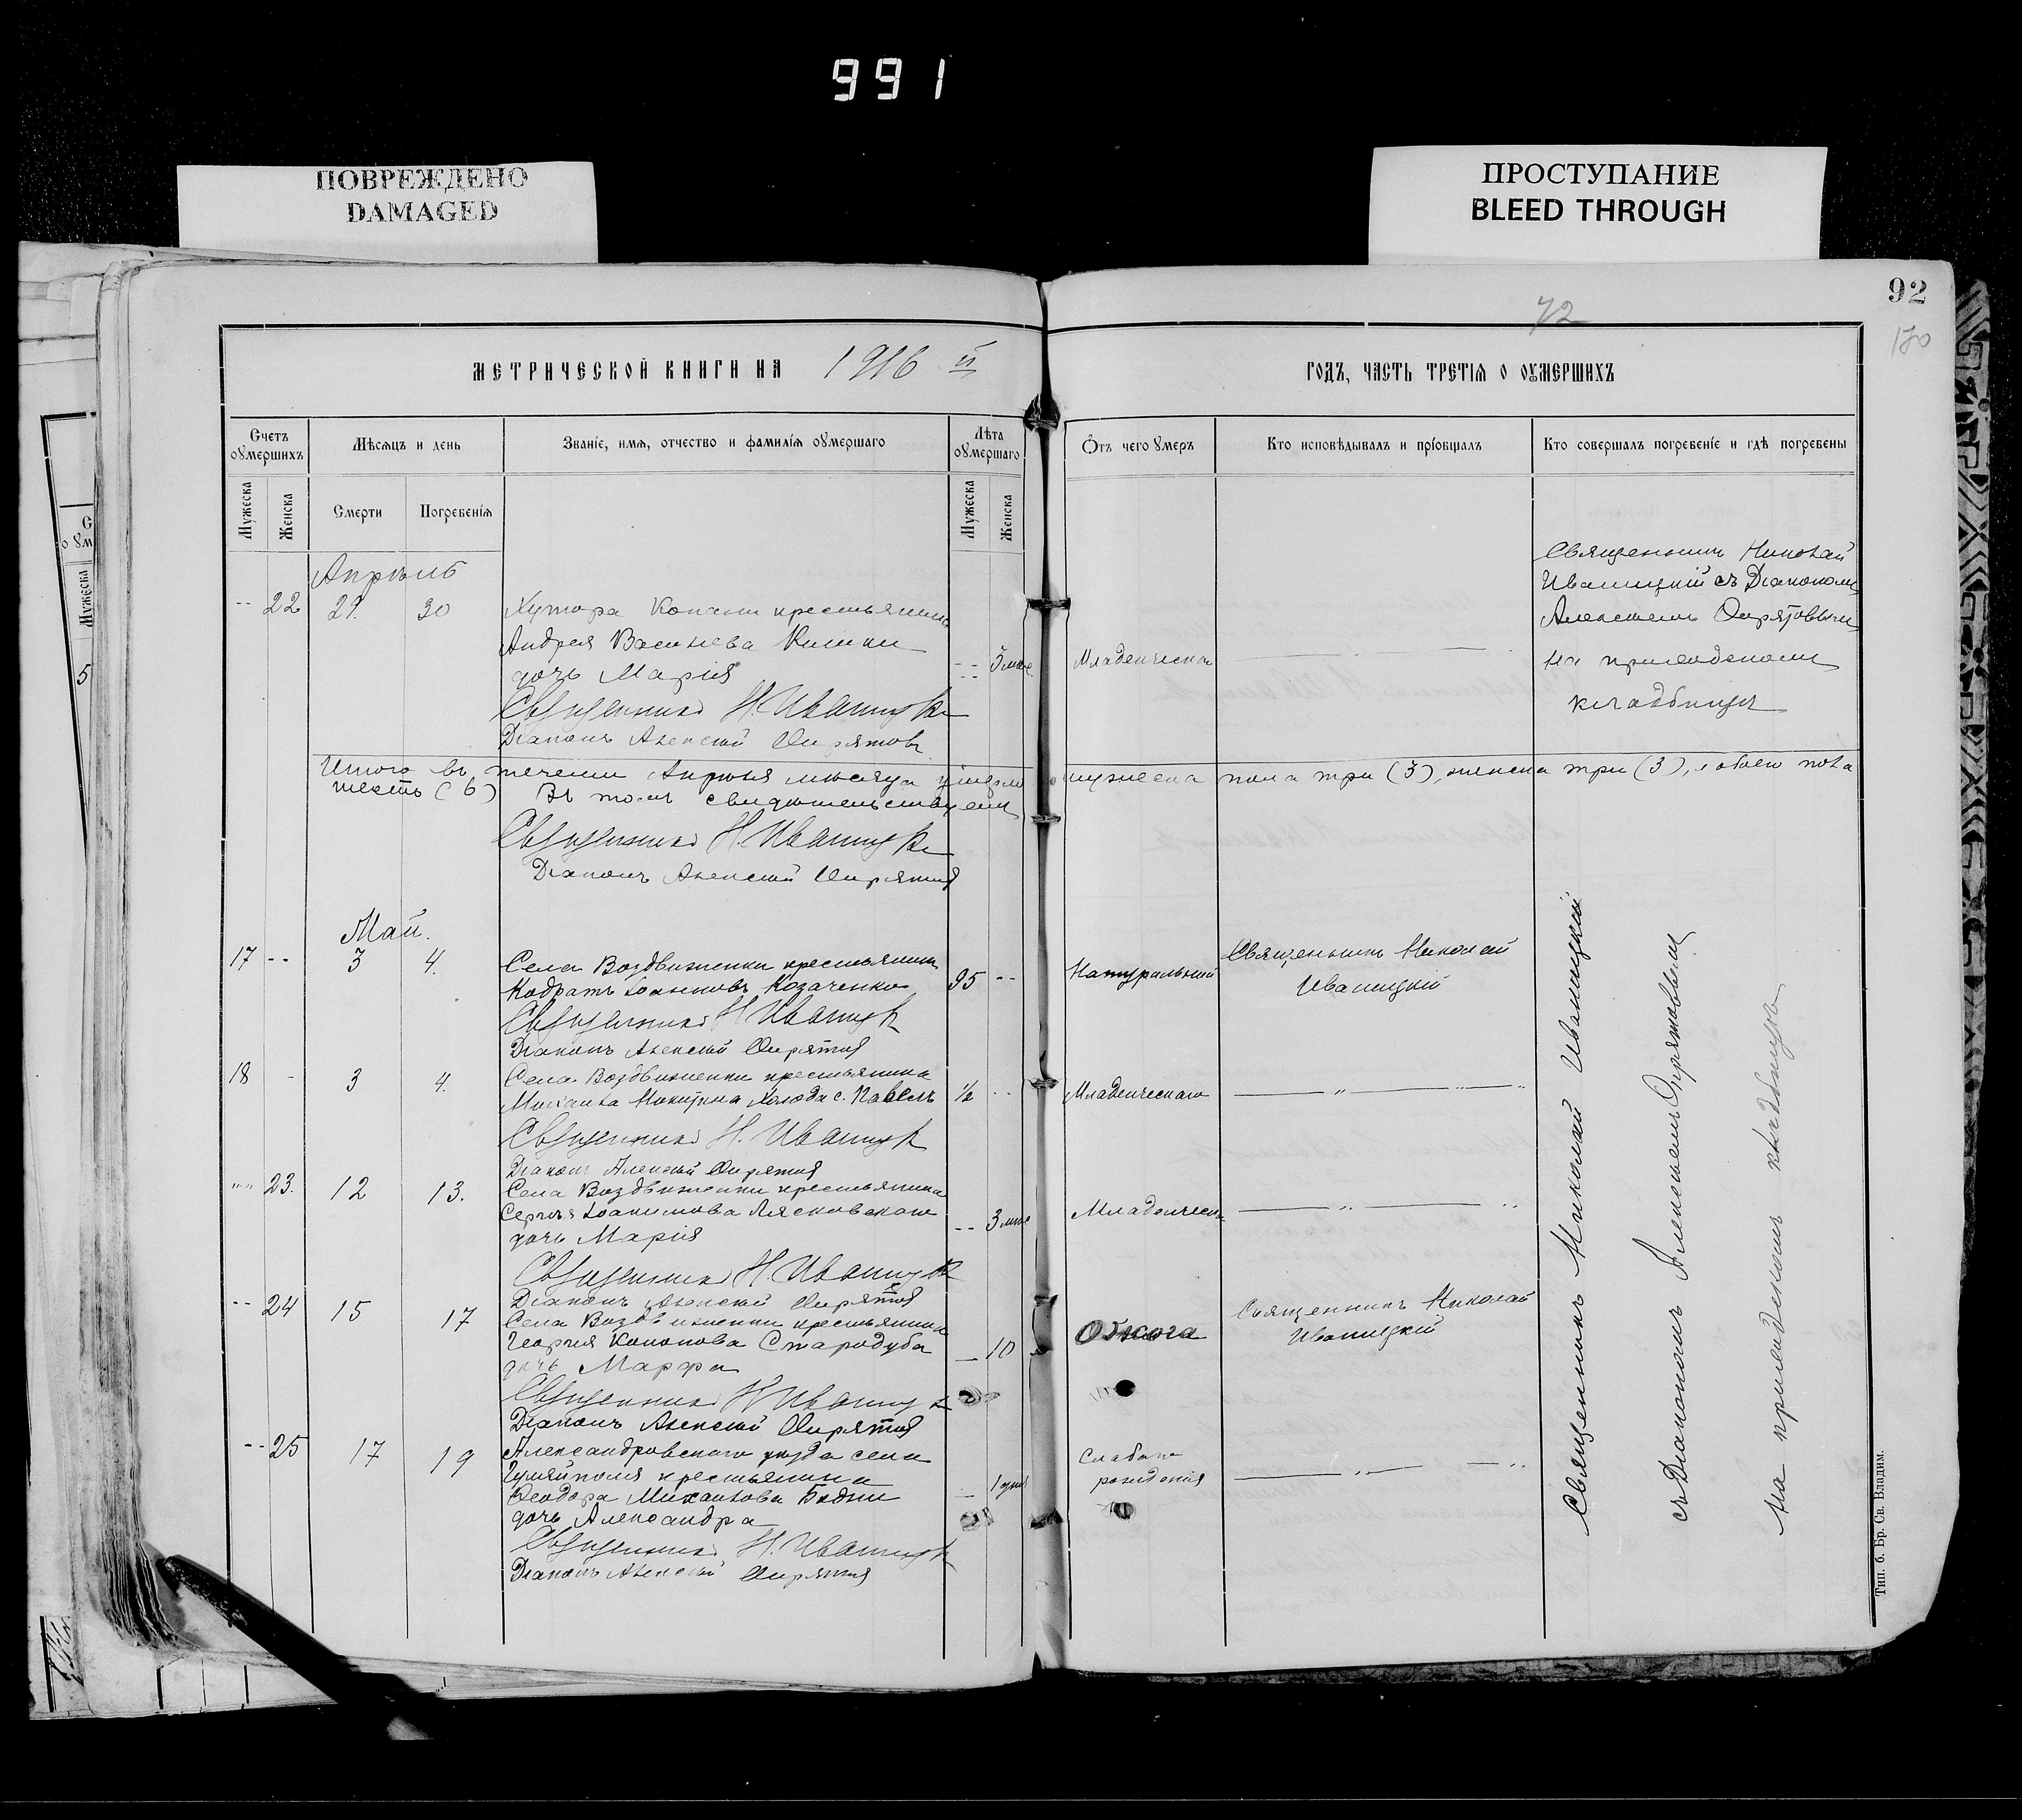 991
ПОВРЕЖДЕНО
DAMAGED
ПРОСТУПАНИЕ
BLEED THROUGH
92
72
180
МЕТРИЧЕСКОЙ КНИГИ НА 1916 й
ГОДЪ, ЧАСТЬ ТРЕТІЯ О ОУМЕРШИХЪ
Счетъ оумершихъ
Мѣсяцъ и день
Званіе, имя, отчество и фамилія оумершаго
Лѣта оумершаго
Отъ чего умеръ
Кто исповѣдывалъ и пріобщалъ
Кто совершалъ погребеніе и гдѣ погребены
Мужеска
Женска
Смерти
Погребенія
Мужеска
Женска
Апрѣль
-- 22 29. 30 Хутора Копани крестьянина
Андрея Васильева
дочь Марія -- 3 мѣс. Младенческая
Священникъ Н. Иваницкій
Діаконъ Алексѣй Опрятовъ
Священникъ Николай
Иваницкій съ Діакономъ
Алексѣемъ Опрятовымъ
на приходскомъ
кладбищѣ
Итого въ течении Апрѣля мѣсяца умерло мужеска пола три (3), женска три (3), обоего пола
шесть (6) Въ томъ свидѣтельствуемъ
Священникъ Н. Иваницкій
Діаконъ Алексѣй Опрятовъ
Май.
17 -- 3 4. Села Воздвиженки крестьянинъ
Кодратъ Іоанновъ Козаченко 95 -- Натуральной
Священникъ Николай
Иваницкій
Священникъ Н Иваницкій
Діаконъ Алексѣй Опрятовъ
18 - 3 4. Села Воздвиженки крестьянина
Михаила Никитина Холода с. Павелъ ½ -- Младенческаго
Священникъ Н. Иваницкій
Діаконъ Алексѣй Опрятовъ
-- 23. 12 13. Села Воздвиженки крестьянина
Сергѣя Іоакимова Лясковскаго
дочь Марія -- 3 мѣс Младенческ.
Священникъ Н. Иваницкій
Діаконъ Алексѣй Опрятовъ
-- 24 15 17 Села Воздвиженки крестьянина
Георгія Кононова Стародуба
дочь Марфа -- 10 Обжога
Священникъ Николай
Иваницкій
Священникъ Н Иваницкій
Діаконъ Алексѣй Опрятовъ
-- 25 17 19 Александровскаго уѣзда села
Гуляйполя крестьянина
Ѳеодора Михайлова Бодни
дочь Александра
Слабаго
рожденія
Священникъ Н. Иваницкій
Діаконъ Алексѣй Опрятовъ
Священникъ Николай Иваницкій
съ Діакономъ Алексѣемъ Опрятовымъ
на приходскомъ кладбищѣ
Тип. б. Бр. Св. Владим.
5